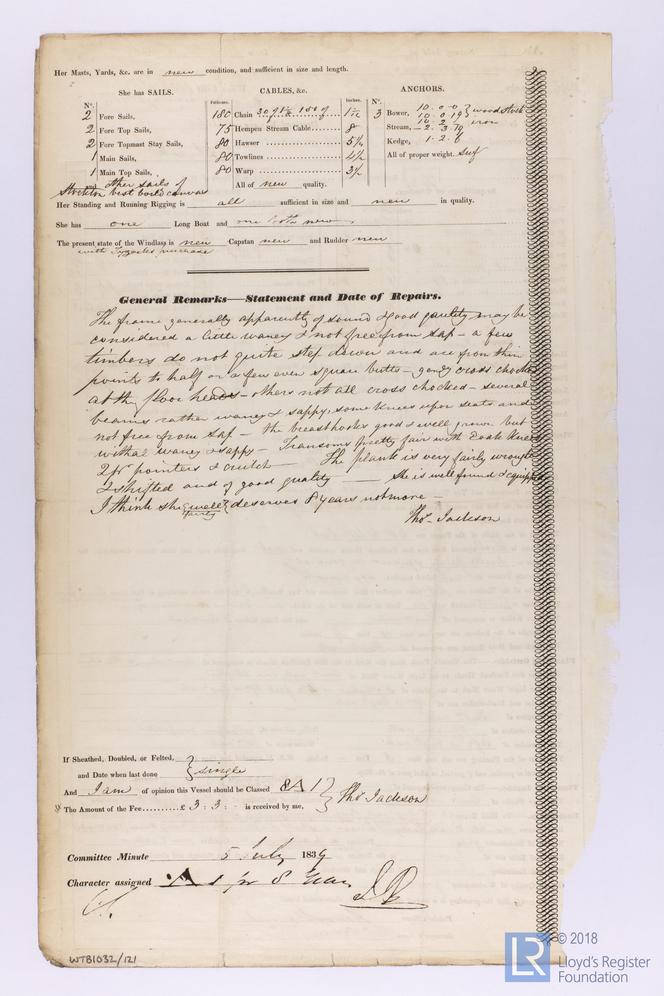 Her Masts, Yards, &c. are in new condition, and sufficient in size and length.
She has SAILS.
CABLES, &c.
ANCHORS.
N°.
Fathoms.
Inches.
N°.
2 Fore Sails,
2 Fore Top Sails,
2 Fore Topmast Stay Sails,
1 Main Sails,
1 Main Top Sails,
and other sails of
best boild canvas
180 Chain 1 1/12
75 Hempen Stream Cable 8
80 Hawser 5½
80 Towlines 4½
80 Warp 3½
All of new quality.
3 Bower, 10. 0. 0 } wood stock
10. 0. 19
Stream, 2. 3. 7 iron
Kedge, 1. 2. 6
All of proper weight. Suf
Her Standing and Running Rigging is all sufficient in size and new in quality.
She has one Long Boat and one both new
The present state of the Windlass is new Capstan new and Rudder new
with purchase
General Remarks—Statement and Date of Repairs.
The frame generally apparently of sound & good quality may be
considered a little waney & not free from sap - a few
timbers do not quite step down and are from thin
points to half or a few even square butts - gendy cross chock
at the floor heads - others not all cross chocked - several
beams rather waney & sappy, some knees upon seats and
not free from sap - the breasthooks good & well grown but
withal waney & sappy - Transoms pretty fair with 2 oak knees
2 pr pointers & crutch The plank is very fairly wrought
& shifted and of good quality She is well found & equipped
I think she well fairly deserves 8 years not more -
Thos. Jackson
If Sheathed, Doubled, or Felted,
and Date when last done } single
And I am of opinion this Vessel should be Classed 8 A 1
The Amount of the Fee.......... £ 3 : 3 : - is received by me, } Thos. Jackson
Committee Minute 5 July 1839
Character assigned A 1 for 8 Years
WTB1032/121
LR
© 2018
Lloyd's Register
Foundation